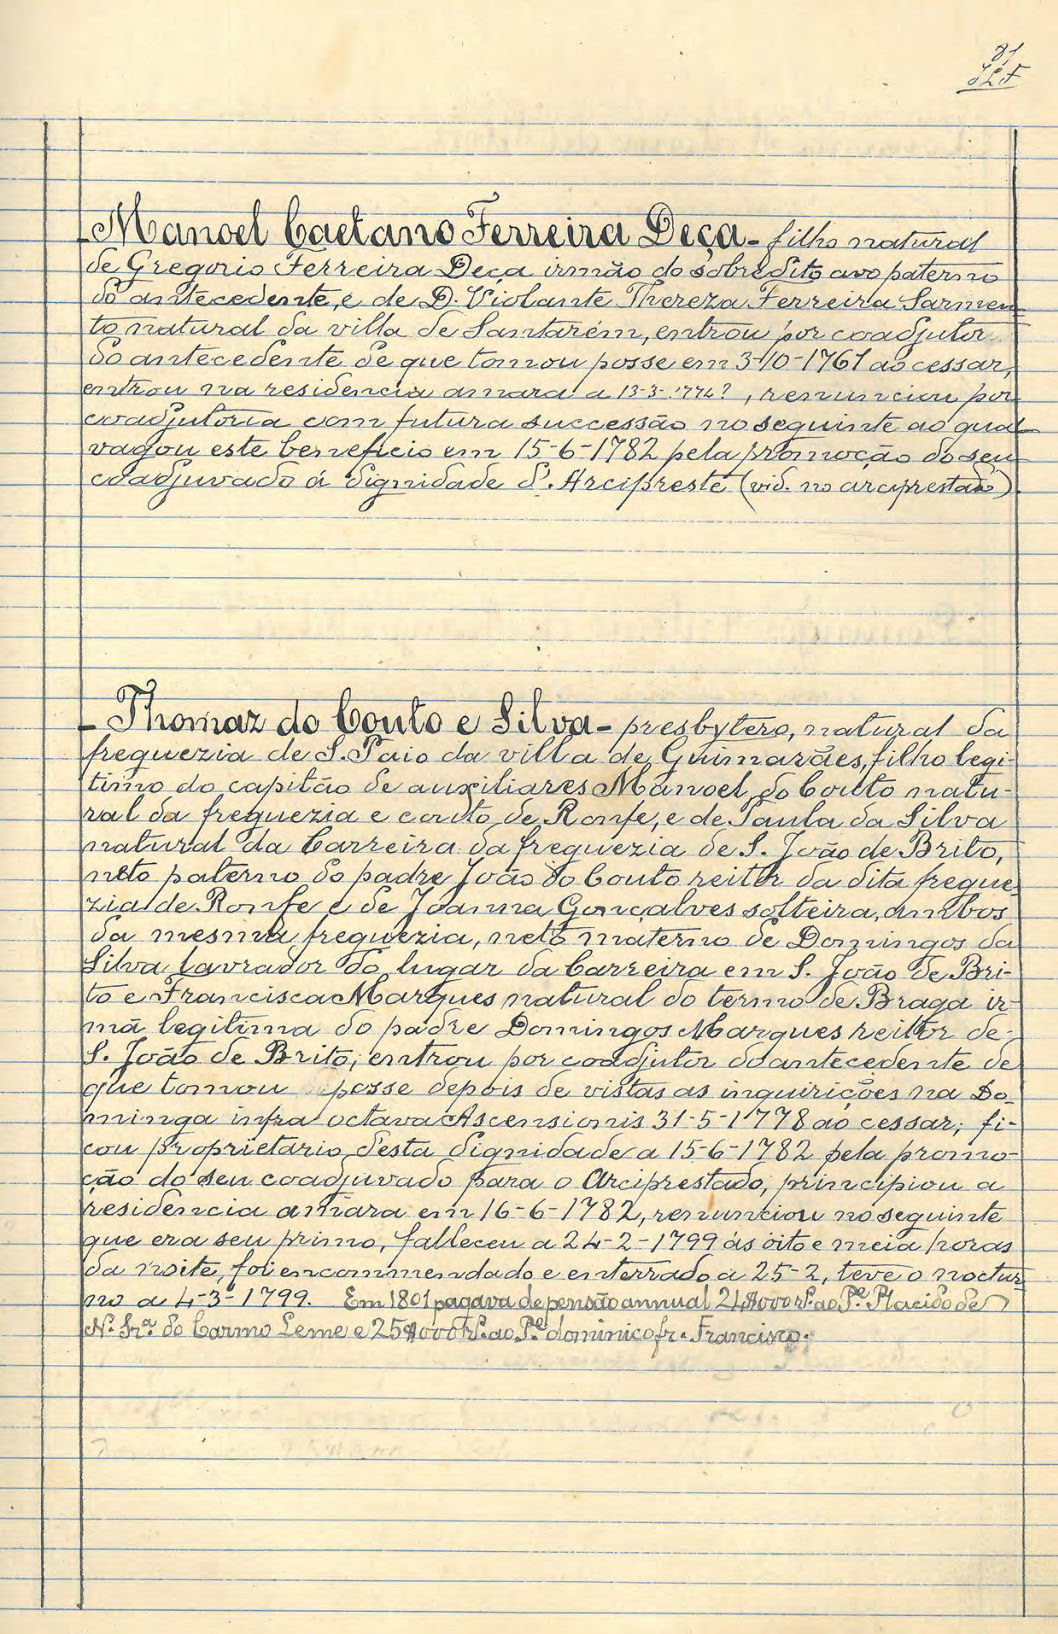 81
Manoel Caetano Ferreira Deça - filho natural
de Gregorio Ferreira Deça irmão do sobredito avo paterno
do antecedente, e de D. Violante Thereza Ferreira Sarmen
to natural da villa de Santarem, entrou por coadjutor
do antecedente de que tomou posse em 3-10-1761 ao cessar,
entrou na residencia amara a 13-3-1774?, renunciou por
coadjutoria com futura successão no seguinte ao qual
vagou este beneficio em 15-6-1782 pela promoção do seu
coadjuvado á dignidade d'Arcipreste (vid. no arciprestado)
- Thomaz do Couto e Silva - presbytero, natural da
freguezia de S. Paio da villa de Guimarães, filho legi-
timo do capitão de auxiliares Manoel do Couto natu-
ral da freguezia e couto de Ronfe, e de Paula da Silva
natural da Carreira da freguezia de S. João de Brito,
neto paterno do padre João do Couto reitor da dita fregue-
zia de Ronfe e de Joanna Gonçalves solteira, ambos
da mesma freguezia, neto materno de Domingos da
Silva lavrador do lugar da Carreira em S. João de Bri-
to e Francisca Marques natural do termo de Braga ir-
mã legitima do padre Domingos Marques reitor de
S. João de Brito; entrou por coadjutor do antecedente de
que tomou posse depois de vistas as inquirições na Do-
minga infra octava Ascensionis 31-5-1778 ao cessar; fi-
cou proprietario desta dignidade a 15-6-1782 pela promo-
ção do seu coadjuvado para o Arciprestado, principiou a
residencia amara em 16-6-1782, renunciou no seguinte
que era seu primo, falleceu a 24-2-1799 ás oito e meia horas
da noite, foi encommendado e enterrado a 25-2, teve o noctur-
no a 4-3-1799. Em 1801 pagava de pensão annual 24$000 rs. ao Pe. Placido de
N. Sra. do Carmo Leme e 25$000 rs. ao Pe. dominico fr. Francisco.